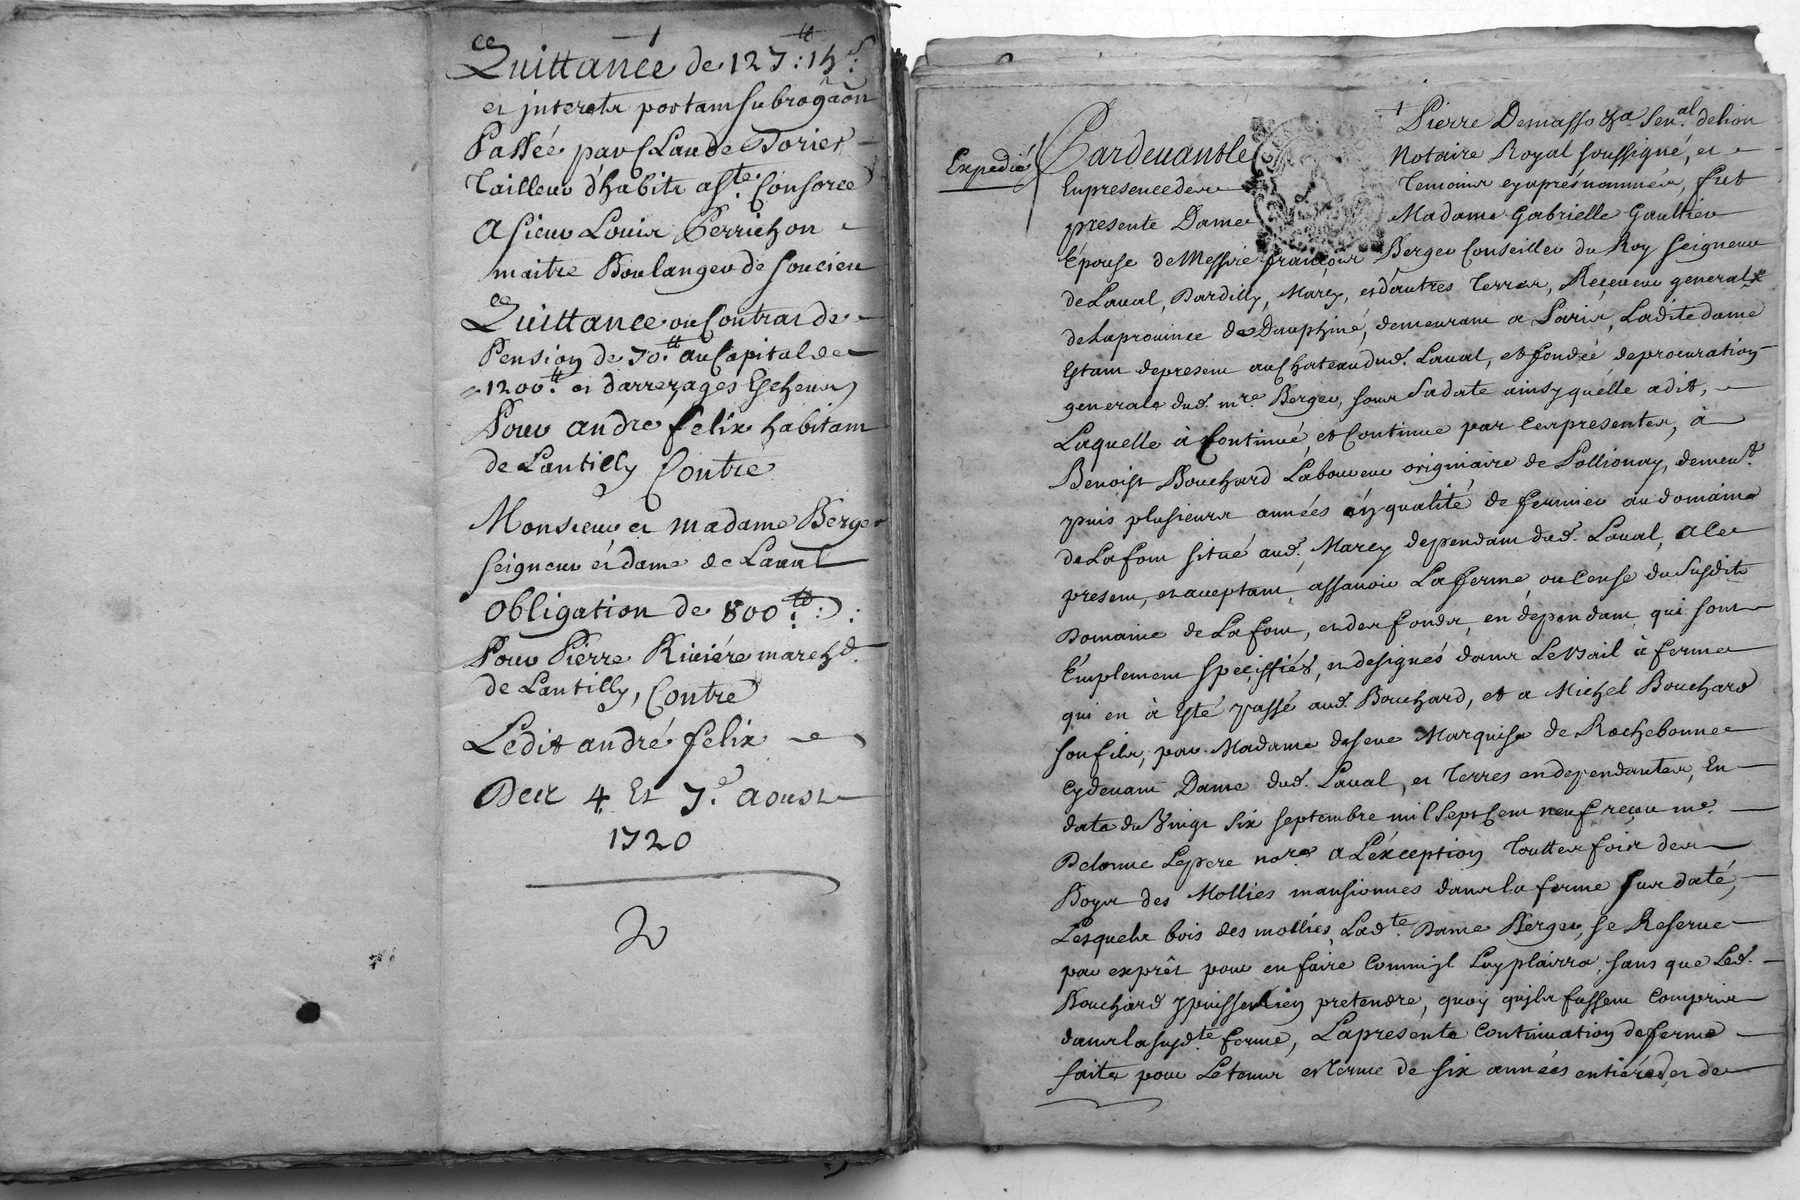 Quittance de 127 tt: 15 s:
et jnterets portant subrogaôn
Passée par Claude Dorier
Tailleur d'habits a Ste. Consorce
A sieur Louis Perrichon
maitre Boulanger de Soucieu
Quittance ou Contrat de
Pension de 70. tt au Capital de
1200. tt et d'arrerages Escheus
Pour andré felix habitant
de Lantilly Contre
Monsieur et madame Berger
seigneur et dame de Laual
obligation de 800 tt:
Pour Pierre Riuiére marchd.
de Lantilly, Contre
Ledit andré felix
Des 4 Et 7e. aoust
1720
2
Expedié
Pardeuant Me Pierre Demasso &a Senal. de lion
Notaire Royal soussigné, et
En presence des Temoins cy aprés nommés, fut
presente Dame Madame Gabrielle Gaultier
Epouse de Messire françois Berger Conseiller du Roy seigneur
de Laual, Dardilly, Marcy, et d'autres Terres, Receueur general
de La prouince de Dauphiné, demeurant a Paris, Ladite dame
Estant de present au Chateau dud. Laual, et fondée de procuration
generale dud. mre. Berger, sous Sa date ainsy qu'elle a dit,
Laquelle à Continué, et Continue par Ces presentes, à
Benoist Bouchard Laboureur originaire de Pollionay, demeut.
depuis plusieurs années en qualité de fermier au domaine
de La font situé aud. Marcy dependant dud. Laual, a Ce
present, et acceptant, assauoir La ferme ou Cense du Susdit
Domaine de La font, et des fonds en dépendant, qui sont
Emplement speciffiés, et designés dans Le bail à ferme
qui en à Esté passé aud. Bouchard, et a Michel Bouchard
son fils, par Madame de seue Marquise de Rochebonne
Cy deuant Dame dud. Laual, et Terres en dependantes, En
date du Vingt Six septembre mil Sept Cent neuf reçeu me.
Delorme Le pere nore. a L'éxception Touttes fois des
Boys des Mollies mansionnes dans la ferme sus daté,
Lesquels bois des mollies, Ladte. Dame Berger, se Reserue
par exprêt pour en faire Comm'jl Luy plairra, sans que Led.
Bouchard y puisse Rien pretendre, quoy qu'jls fussent Compris
dans la susdte ferme, La presente Continuation de ferme
faite pour Le tems et Terme de Six années entiéres, et de